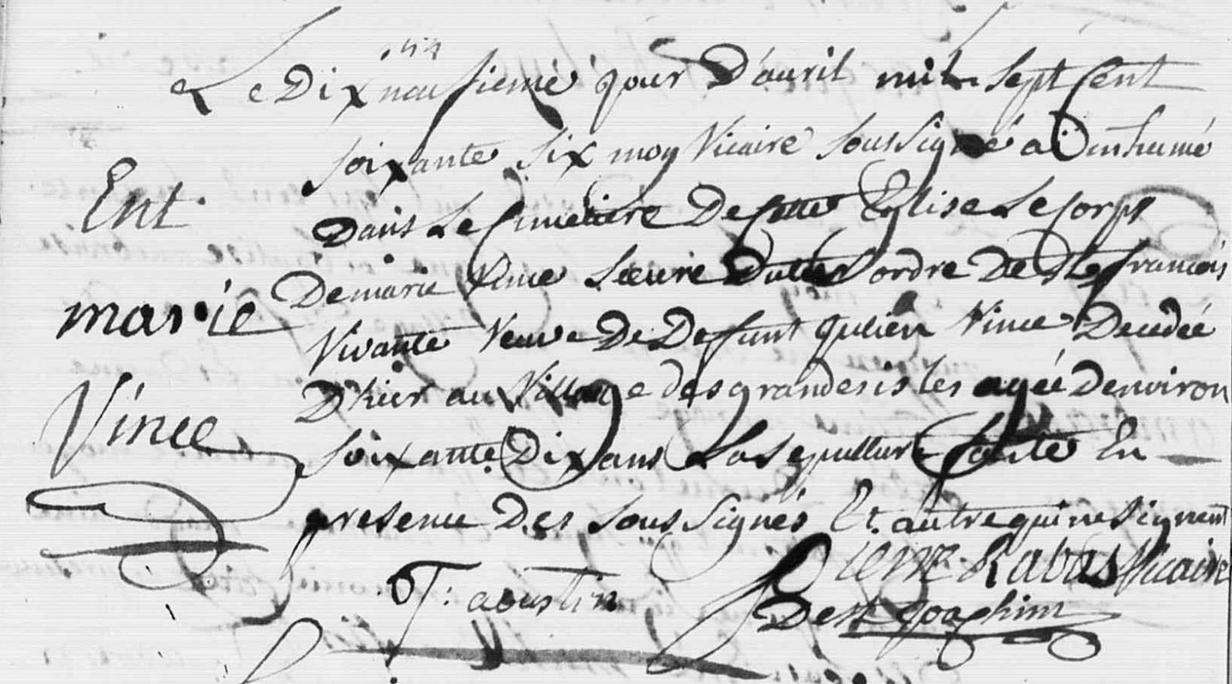 Le Dixneufieme jour D'auril mil sept Cent
soixante six moy Vicaire soussigné a Dinhumé
Ent
Dans Le Cimetiere De Cette Eglise Le Corps
De marie Vince Sœure Du tiers ordre De St francois
marie
Vivante Veuve De Defunt Julien Vince Decedée
D'hier au Village des grandes isles agée Denviron
Vince
soixante Dix ans La sepulture faite En
presence Des sous signés Et autre qui ne signent
Pierre Rabas Vicaire
De St Joachim